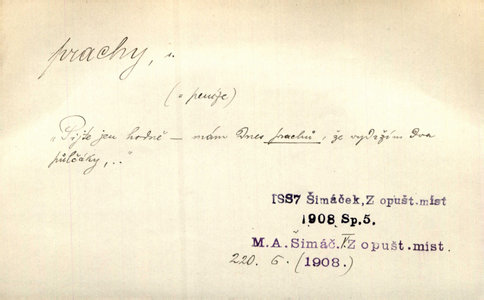 prachy,
(= peníze)
„Pijte jen hodně — mám dnes prachů, že vydržím dva
půlčáky,.."
1887 Šimáček, Z opušt.míst
1908 Sp.5.
M.A.Šimáč. Z opušt.míst.
220. 6. (1908.)